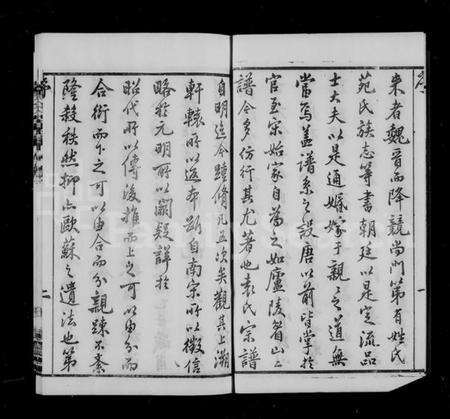 来者魏晋而降競尚門第有姓氏
苑氏族志等書朝廷以是定流品
士大夫以是通婚嫁于親之道無
當焉蓋譜系之設唐以前皆掌於
官至宋始家自為之如廬陵眉山之
譜今多仿行其尤著也袁氏宗譜
自明迄今踵脩凡五次矣觀其上溯
軒轅所以追本斷自南宋所以徵信
略於元明所以闕疑詳於
昭代所以傳後推而上之可以由分而
合衍而下之可以由合而分親踈不紊
隆殺秩然抑亦歐蘇之遺法也第
一
二